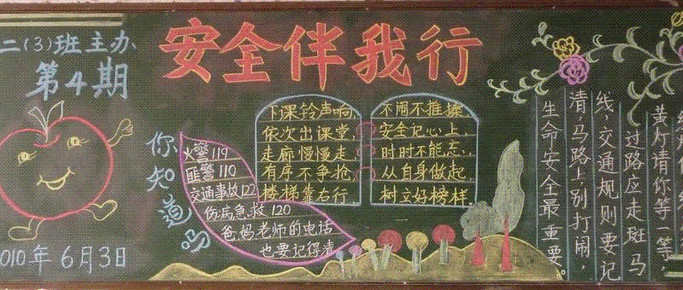 二(3)班主办
第4期
010年6月3日
安全伴我行
你知道吗
火警119
匪警110
交通事故122
伤病急救120
爸妈老师的电话
也要记得清
下课铃声响,
依次出课堂,
走廊慢慢走,
有序不争抢,
楼梯靠右行,
不闹不推搡,
安全记心上,
时时不能忘,
从自身做起,
树立好榜样
黄灯请你等一等,
过路应走斑马
线,交通规则要记
清,马路上别打闹,
生命安全最重要。